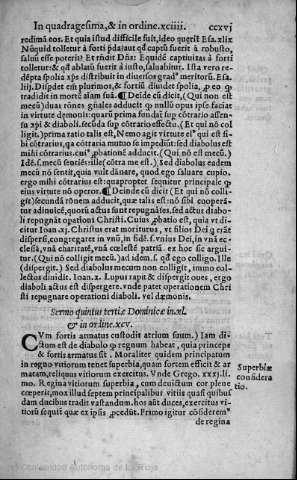 In quadragesima, & in ordine. xciiii. ccxvj
redimã eos. Et quia istud difficile fuit, ideo querit Esa. xlix
Nũquid tolletur à forti p̃da? aut qđ captũ fuerit à robusto,
saluũ esse poterit? Et r̃ndit Dñs: Equidẽ captiuitas à forti
tolletur: & qđ ablatũ fuerit à iusto, saluabitur. Ista vero re-
dẽpta spolia xp̃s distribuit in diuersos grad⁹ meritorũ. Esa.
liij. Dispđet eis plurimos, & fortiũ diuidet spolia, p eo q
tradidit in mortẽ aĩam suã. ¶ Deinde cũ dicit, (Qui non est
mecũ) duas rõnes gñales adducit q nullũ opus ipse faciat
in virtute demonis: quarũ prima fundat̃ sup cõtrario assen-
su xp̃i & diaboli. secũda sup cõtrario effectu. (Et qui nõ col
ligit.) prima ratio talis est, Nemo agit virtute el⁹ qui est si-
bi cõtrarius, qa cõtraria mutuo se impediũt: sed diabolus est
mihi cõtrarius. cui⁹ pbationẽ adducit. (Qui nõ est mecũ.)
Idẽ. s. mecũ sentiẽs: ille (cõtra me est.) Sed diabolus eadem
mecũ nõ sentit, quia vult dãnare, quod ego saluare cupio.
ergo mihi cõtrarius est: quapropter sequitur principale q
eius virtute nõ operor. ¶ Deinde cũ dicit (Et qui nõ colli-
git) secundã rõnem adducit, quæ talis est: nõ sibi coopera-
tur adinuicẽ, quorũ actus sunt repugnãtes. sed actus diabo-
li repugnãt operationi Christi. Cuius pbatio est, quia vt di-
citur Ioan. xj. Christus erat moriturus, vt filios Dei q erãt
dispersi, congregaret in vnũ, in fidẽ. s. vnius Dei, in vna ec-
clesiã, vnã charitatẽ, vnã cælestẽ patriã. ex hoc sic argui-
tur. (Qui nõ colligit mecũ.) ad idem. s. qđ ego colligo. Ille
(dispergit.) Sed diabolus mecum non colligit, immo col-
lectos diuidit. Ioan. x. Lupus rapit & dispergit oues, ergo
diaboli actus est dispergere. vnde patet operationem Chri
sti repugnare operationi diaboli. vel dæmonis.
Sermo quintus tertiæ Dominicæ in. xl.
& in ordine. xcv.
CVm fortis armatus custodit atrium suum.) Iam di-
ctum est de diabolo q regnum habeat, quia princĩpe
& fortis armatus sit. Moraliter quidem principatum
in regno vitiorum tenet superbia, quam fortem efficit & ar
matam, reliquus vitiorum exercitus. Vnde Grego. xxxj. li.
mo. Regina vitiorum superbia, cum deuictum cor plene
cœperit, mox illud septem principalibus vitiis quasi quibus
dam ducibus tradit vastandum. hos aũt duces, exercitus vi-
tiorũ sequit̃ quæ ex ipsis pcedũt. Primo igitur cõsiderem⁹
Superbiæ
consideratio.
de regina